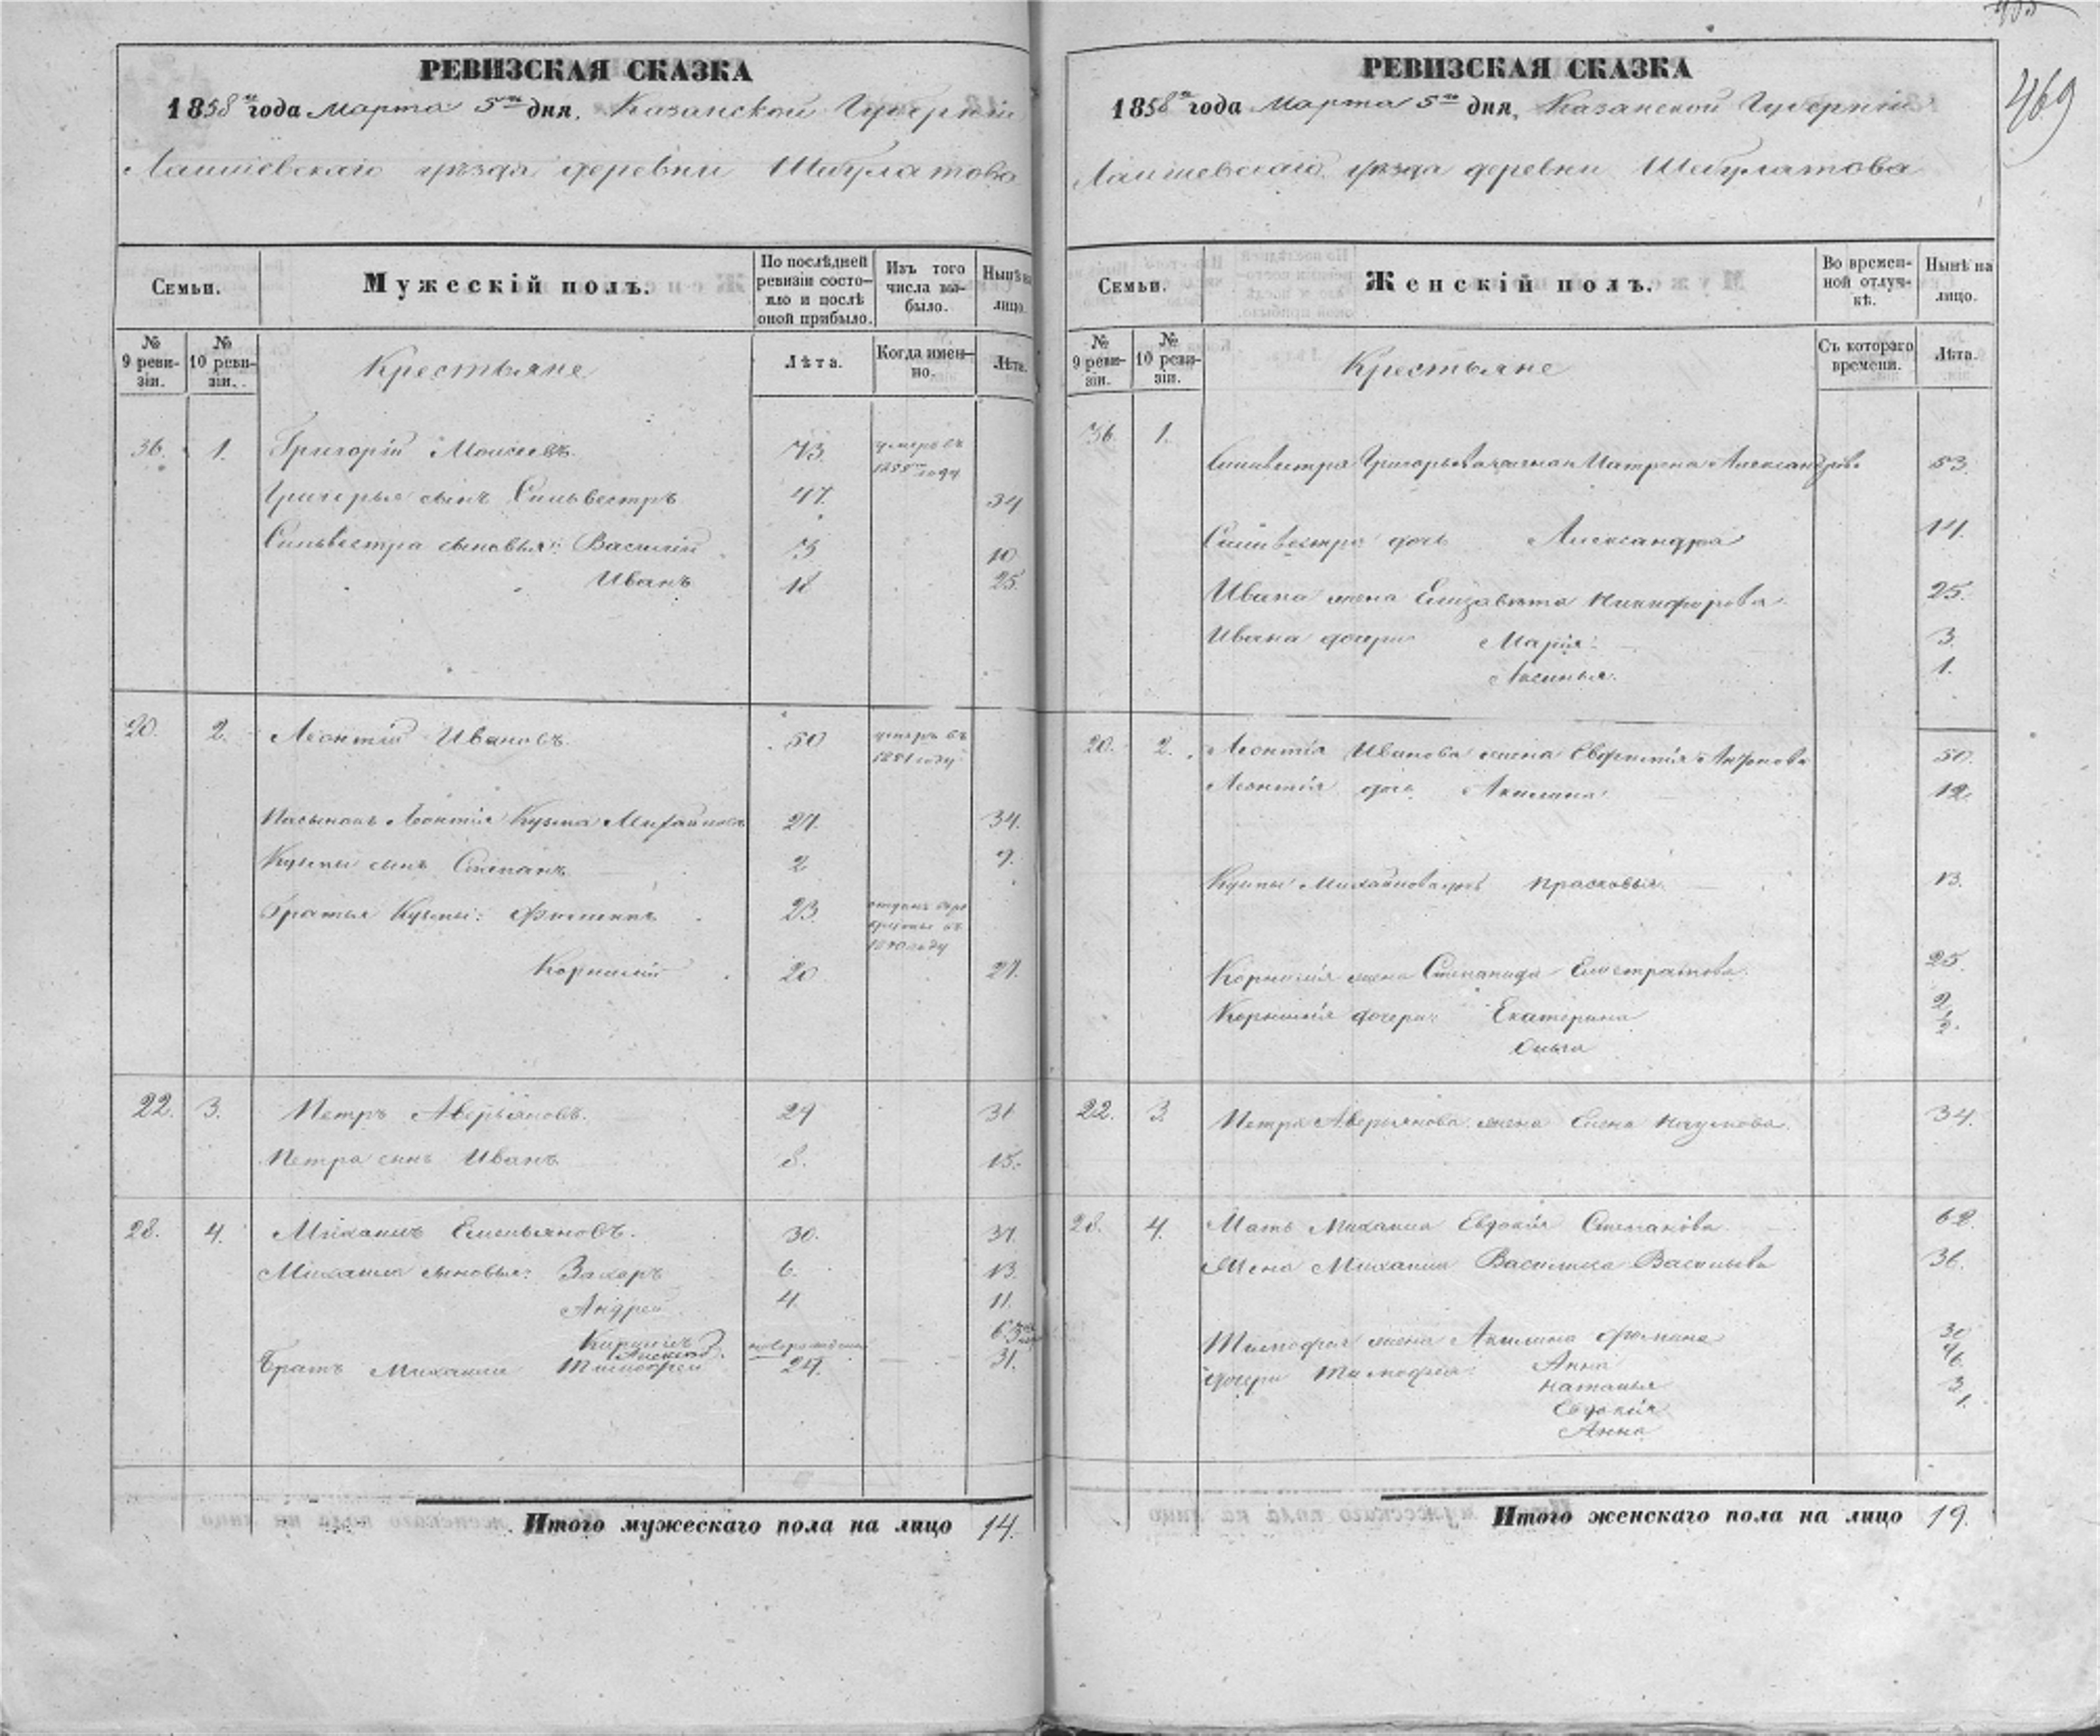 РЕВИЗСКАЯ СКАЗКА
1858го года Марта 5го дня, Казанской Губерніи
Лаишевскаго уѣзда деревни Шибулатова
Семьи.
Мужескій полъ.
По послѣдней ревизіи состояло и послѣ оной прибыло.
Изъ того числа выбыло.
Нынѣ на лицо.
№ 9 ревизіи.
№ 10 ревизіи.
Крестьяне
Лѣта.
Когда именно.
Лѣта.
36. 1. Григорій Моисеевъ 73 умеръ въ 1855м году
Григорья сынъ Сильвестръ 47. 34
Сильвестра сыновья: Василій 3 10
Иванъ 18 25.
20. 2. Леонтій Ивановъ 50 умеръ въ 1851 году
Пасынокъ Леонтія Кузма Михайловъ 27. 34.
Кузмы сынъ Степанъ 2 9.
Братья Кузмы: 23
Корнилій 20 27.
22. 3. Петръ Аверьяновъ. 24 31
Петра сынъ Иванъ 8. 15.
28. 4. Михаилъ Емельяновъ. 30. 37.
Михаила сыновья: Захаръ 6. 13.
Андрей 4 11.
Кирилъ
Алексей новорожденны
Братъ Михаила Тимофей 24. 31.
Итого мужескаго пола на лицо 14.
469
РЕВИЗСКАЯ СКАЗКА
1858го года Марта 5го дня, Казанской Губерніи
Лаишевскаго уѣзда деревни Шибулатова
Семьи.
Женскій полъ.
Во временной отлучкѣ.
Нынѣ на лицо.
№ 9 ревизіи.
№ 10 ревизіи.
Крестьяне
Съ котораго времени.
Лѣта.
36. 1. Сильвестра Григорьева жена Матрена Александрова 53.
Сильвестра дочь Александра 14.
Ивана жена Елизавета Никифорова 25.
Ивана дочери Марія 3.
Аксинья. 1.
20. 2. Леонтія Иванова жена Евфимія Антонова 50.
Леонтія дочь Акилина 12.
Кузмы Михайлова дочь Прасковья 13.
Корнилія жена Степанида Елистратова 25.
Корнилія дочери: Екатерина 2
Ольга ½.
22. 3. Петра Аверьянова жена Елена Наумова. 34.
28. 4. Мать Михаила Евдокія Степанова 62.
Жена Михаила Василиса Васильева 36.
Тимофея жена Акилина Фомина 30
дочери Тимофея: Анна
Наталья
Евдокія 3
Анна 1
Итого женскаго пола на лицо 19.